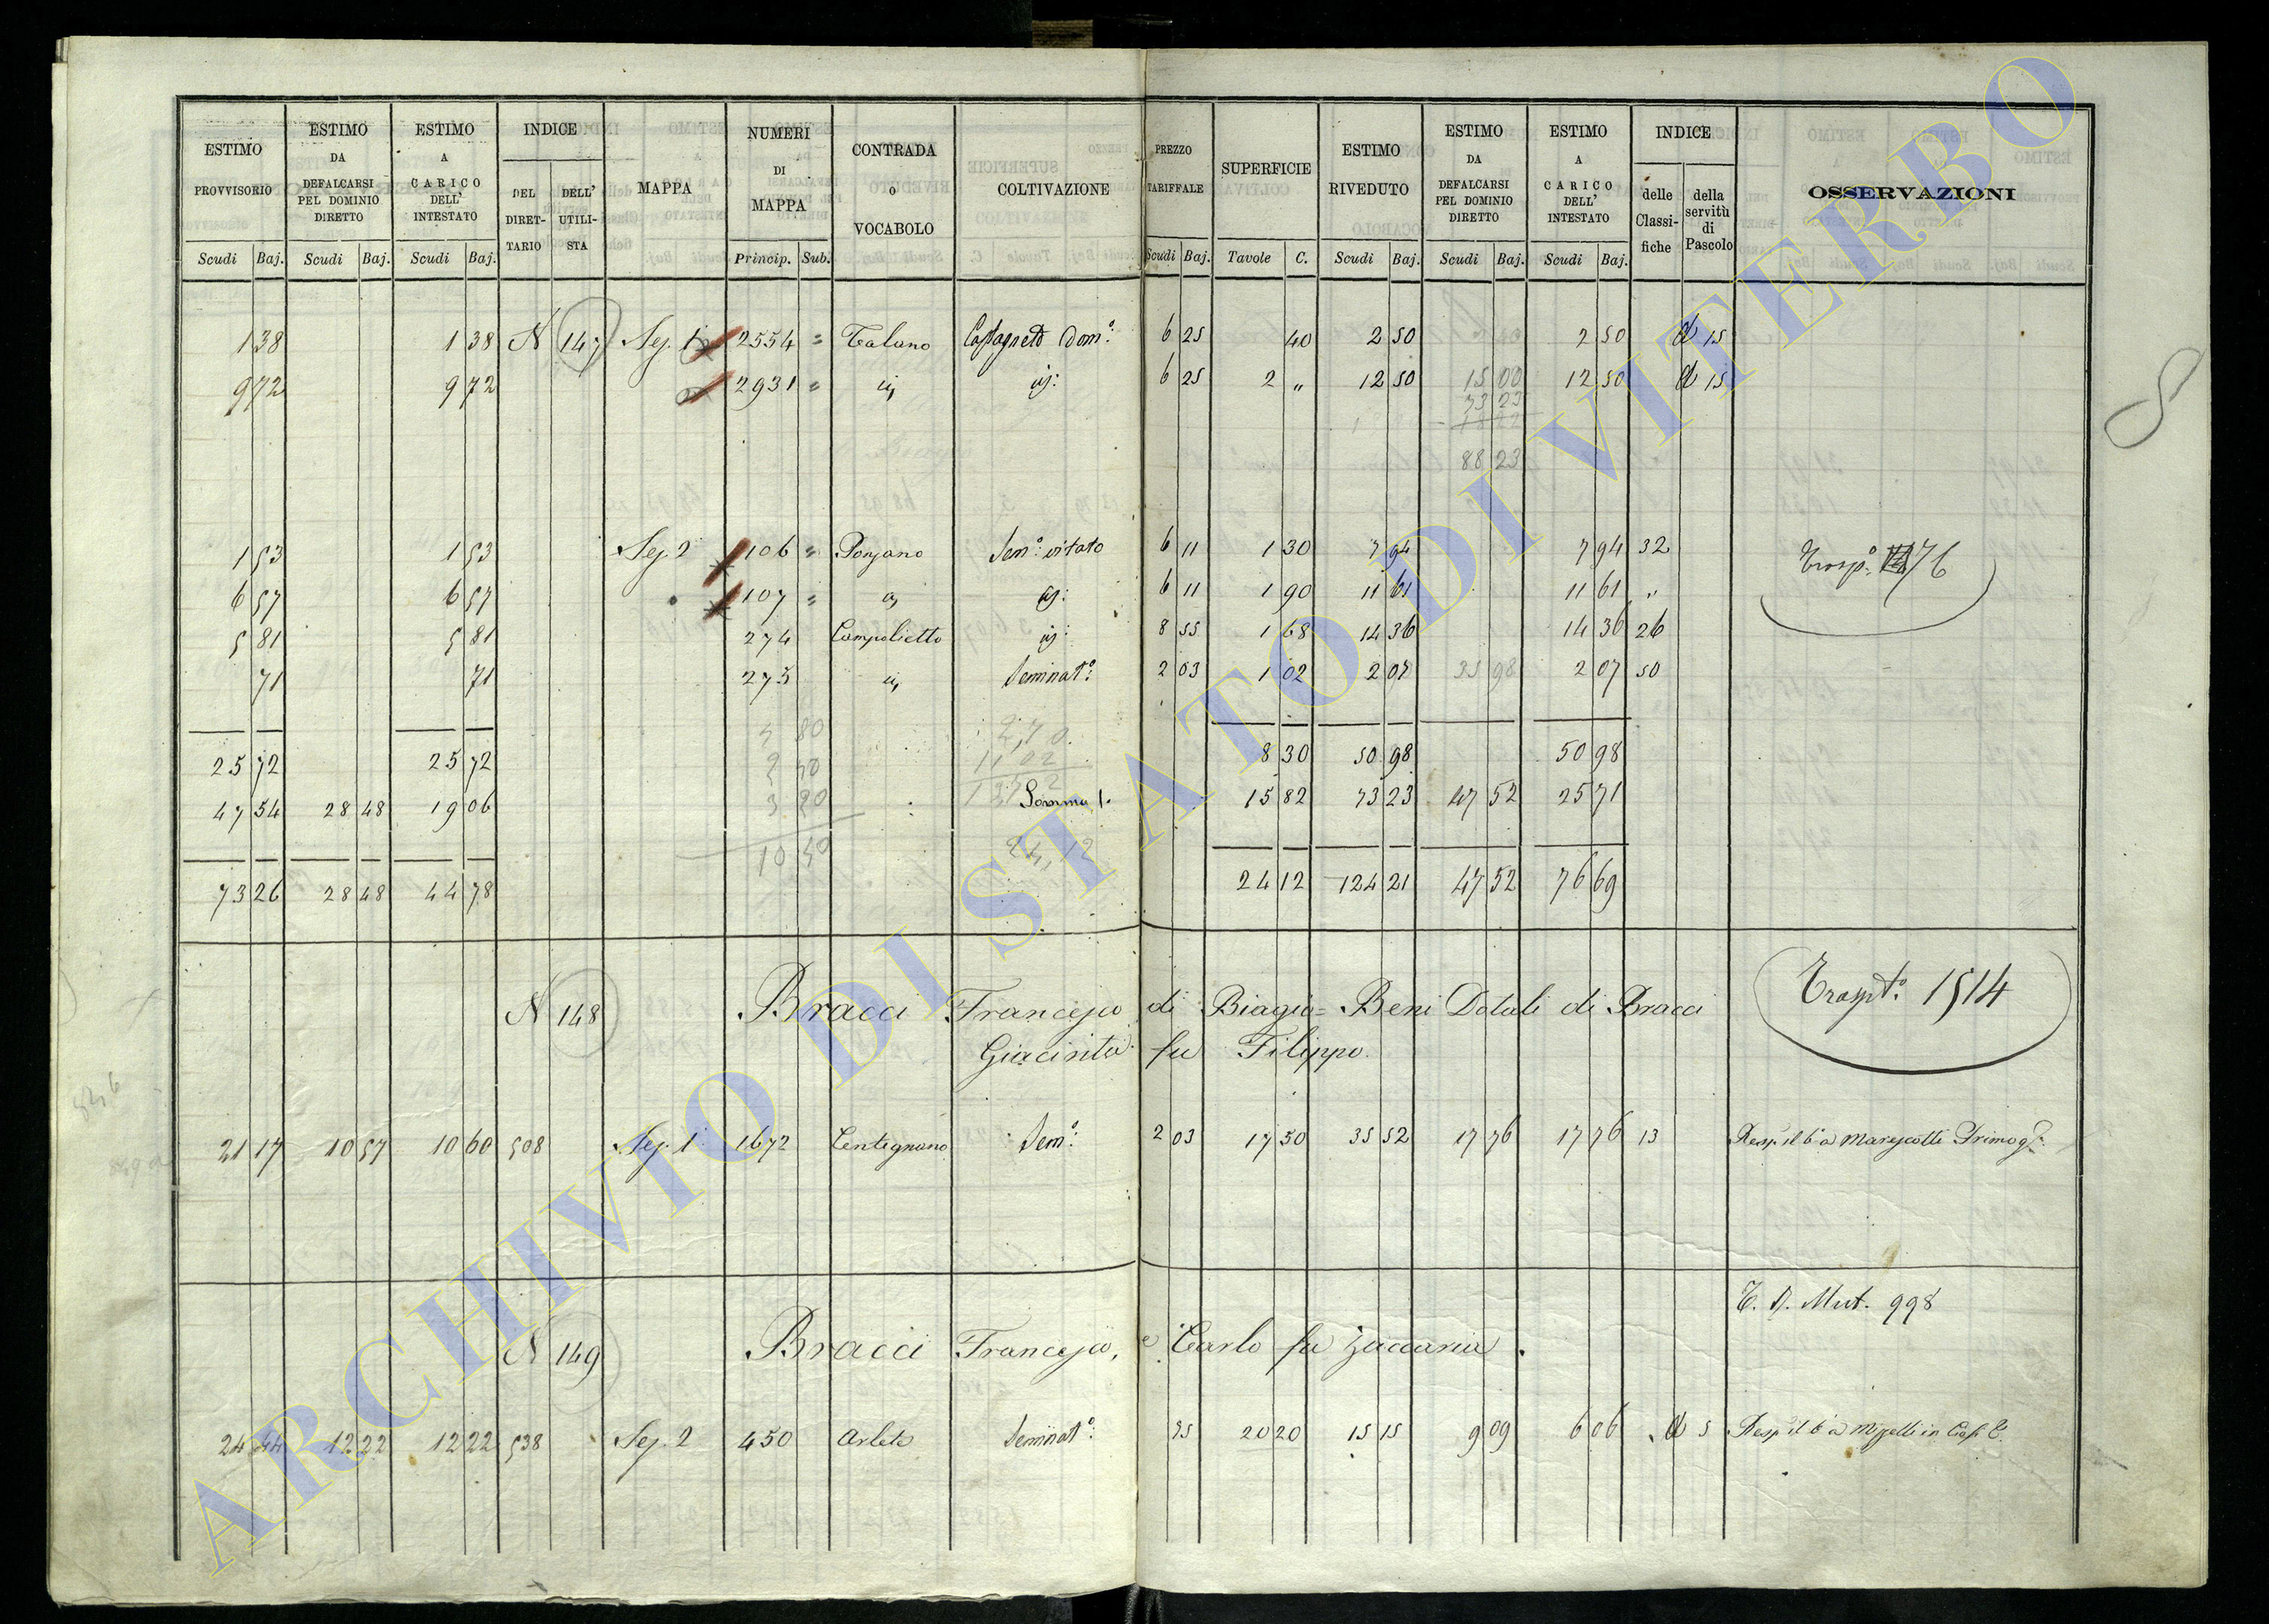 ESTIMO PROVVISORIO | ESTIMO DA DEFALCARSI PEL DOMINIO DIRETTO | ESTIMO A CARICO DELL' INTESTATO | INDICE | MAPPA | NUMERI DI MAPPA | CONTRADA o VOCABOLO | COLTIVAZIONE | PREZZO TARIFFALE | SUPERFICIE | ESTIMO RIVEDUTO | ESTIMO DA DEFALCARSI PEL DOMINIO DIRETTO | ESTIMO A CARICO DELL' INTESTATO | INDICE | OSSERVAZIONI
DEL DIRETTARIO | DELL' UTILISTA | delle Classifiche | della servitù di Pascolo
Scudi Baj. | Scudi Baj. | Scudi Baj. | Princip. Sub. | Scudi Baj. | Tavole C. | Scudi Baj. | Scudi Baj. | Scudi Baj.
1 38 | 1 38 | N 147 | Sez. 1 | 2554 = | Talano | Castagneto Dom.° | 6 25 | 40 | 2 50 | 2 50 | 15
9 72 | 9 72 | 2931 = | 6 25 | 2 „ | 12 50 | 15 00 | 12 50 | 15
73 23
88 23
8
1 53 | 1 53 | Sez. 2 | 106 = | Ponzano | Sem.° vitato | 6 11 | 1 30 | 7 94 | 7 94 | 32 | 76
6 57 | 6 57 | 107 = | 6 11 | 1 90 | 11 61 | 11 61 | „
5 81 | 5 81 | 274 | Campolietto | 8 55 | 1 68 | 14 36 | 14 36 | 26
71 | 71 | 275 | Seminat.° | 2 03 | 1 02 | 2 07 | 35 98 | 2 07 | 50
25 72 | 25 72 | 8 30 | 50 98 | 50 98
47 54 | 28 48 | 19 06 | Somma | 15 82 | 73 23 | 47 52 | 25 71
10 40 | 24,12
73 26 | 28 48 | 44 78 | 24 12 | 124 21 | 47 52 | 76 69
N 148 | Bracci Francesco di Biagio = Beni Dotali di Bracci | Trasp.to 1514
Giacinta fu Filippo.
21 17 | 10 57 | 10 60 | 508 | Sez. 1 | 1672 | Centignano | Sem.° | 2 03 | 17 50 | 35 52 | 17 76 | 17 76 | 13 | Resp. il 6 a Marescotti
T. N. Mut. 998
N 149 | Bracci Francesco, e Carlo fu Zaccaria.
24 44 | 12 22 | 12 22 | 538 | Sez. 2 | 450 | Arleto | Seminat.° | 75 | 20 20 | 15 15 | 9 09 | 6 06 | 5 | Resp. il 6 a
ARCHIVIO DI STATO DI VITERBO